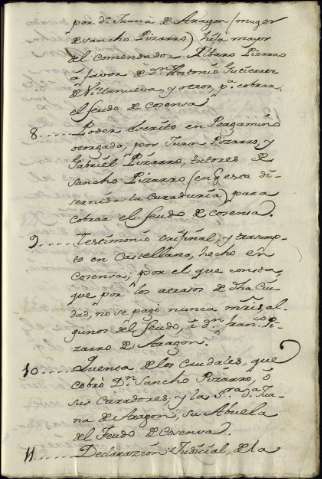 por dª Juana de Aragon (muger
de Sancho Pizarro) hija mayor
del comendador Albaro Pizarro
a favor de Dn Antonio Gutierrez
de Villanueva, y otros, pª cobrar
el feudo de cosensa
8..... Poder escrito en Pergamino
otorgado, por Juan Pizarro, y
Gabriel Pizarro, tutores de
Sancho Pizarro (en qe esta di-
la curaduria) para
cobrar el feudo de cosensa.
9..... Testimonio original, y transump-
to en Castellano, hecho en
Cosensa, por el que consta
que por los acasos de dha Ciu-
dad, no se pagó nunca mrs al-
gunos del feudo, á dn Franco Pi-
zarro de Aragon.
10..... Quenta de los caudales, que
cobró Dn Sancho Pizarro, ó
sus curadores, y la Srª dª Jua-
na de Aragon, su Abuela
del Feudo de Cosensa.
11..... Declarazion Judicial, de la